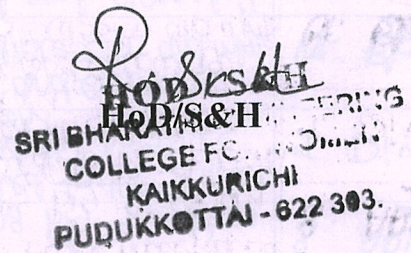 HoD/S&H
HoD/S&H
SRI BHARATHI ENGINEERING
COLLEGE FOR WOMEN
KAIKKURICHI
PUDUKKOTTAI - 622 303.